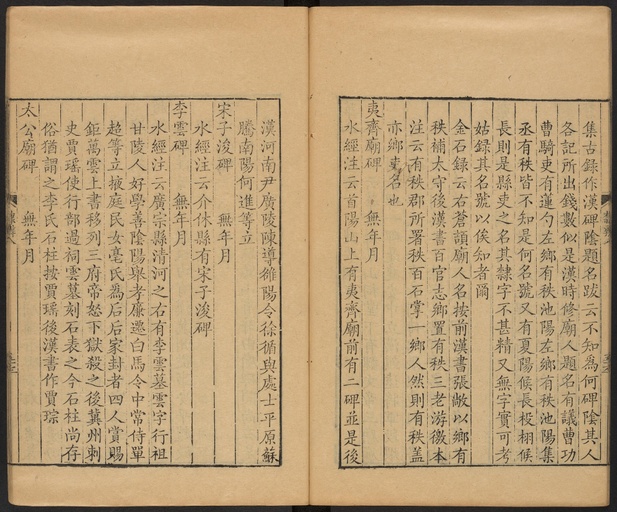 集古録作漢碑陰題名跋云不知為何碑陰其人
各記所出錢數似是漢時修廟人題名有議曹功
曹騎吏有蓮勺左鄉有秩池陽左鄉有秩池陽集
丞有秩皆不知是何名號又有夏陽候長祋栩候
長則是縣吏之名其隸字不甚精又無字實可考
姑録其名號以俟知者爾
金石録云右蒼頡廟人名按前漢書張敞以鄉有
秩補太守後漢書百官志鄉置有秩三老游徼本
注云有秩郡所署秩百石掌一鄉人然則有秩盖
亦鄉吏名也
夷齊廟碑 無年月
水經注云首陽山上有夷齊廟前有二碑並是後
漢河南尹廣陵陳導雒陽令徐循與處士平原蘇
騰南陽何進等立
宋子浚碑 無年月
水經注云介休縣有宋子浚碑
李雲碑 無年月
水經注云廣宗縣清河之右有李雲墓雲字行祖
甘陵人好學善陰陽舉孝廉遷白馬令中常侍單
超等立掖庭民女亳氏為后后家封者四人賞賜
鉅萬雲上書移列三府帝怒下獄殺之後冀州刺
史賈瑶使行部過祠雲墓刻石表之今石柱尚存
俗猶謂之李氏石柱按賈瑶後漢書作賈琮
太公廟碑 無年月